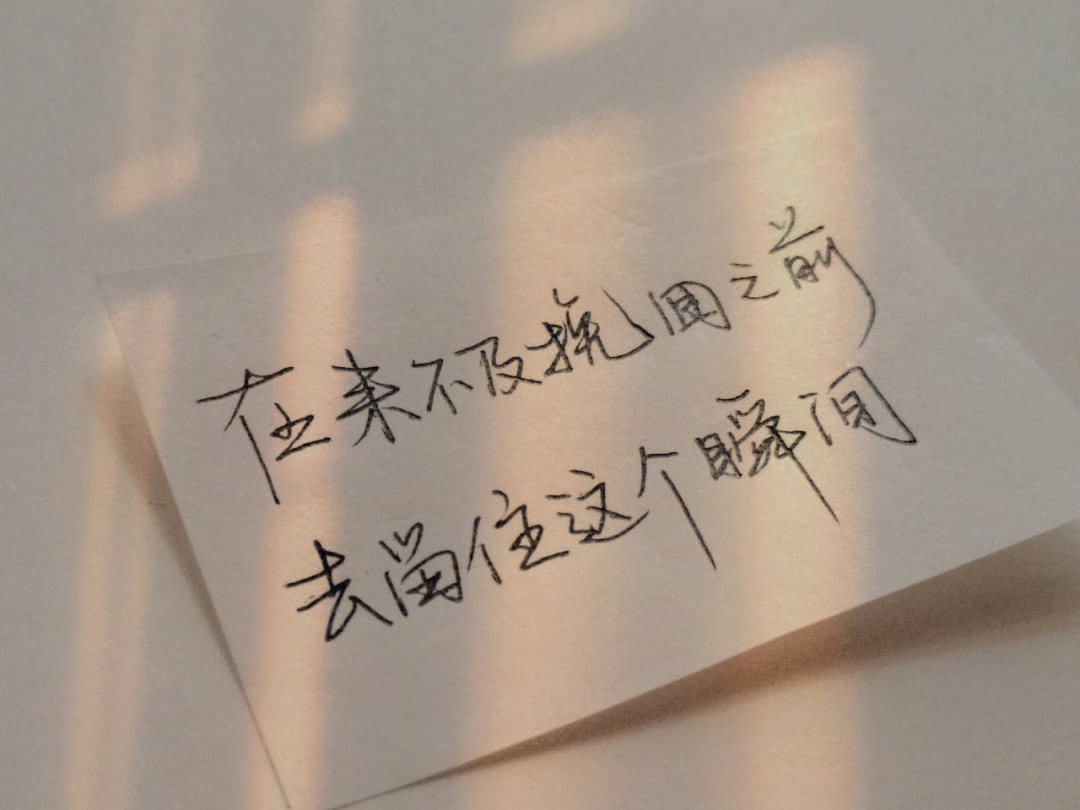 在来不及挽回之前
去留住这个瞬间